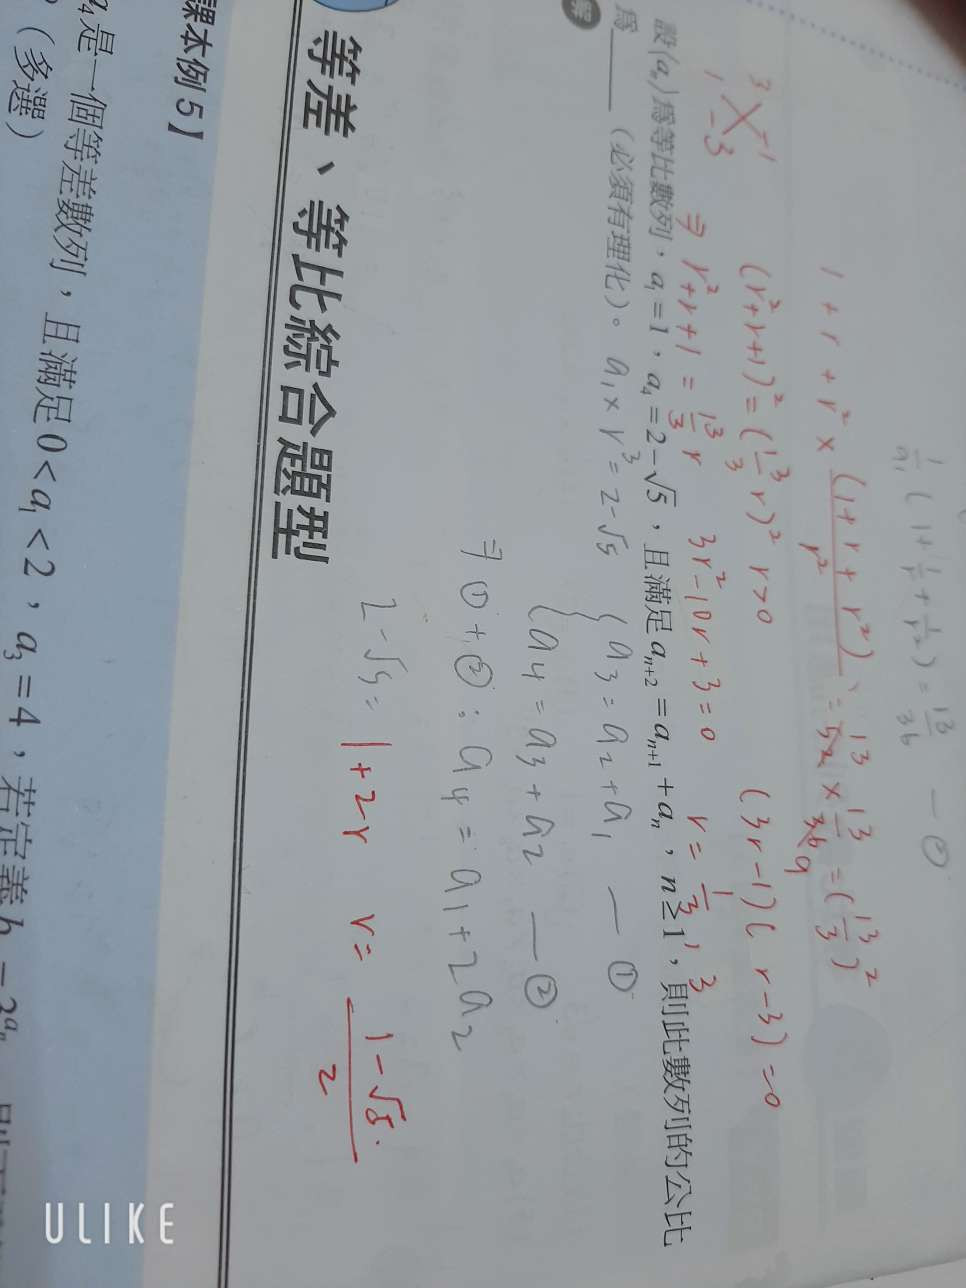 1/a₁ (1 + 1/r + 1/r²) = 13/36 — ②
1 + r + r² × (1 + r + r²)/r² = 52 × 13/36 = (13/3)²
(r²+r+1)² = (13/3 r)² r>0
3 -1
1 -3
(3r-1)(r-3)=0
⇒ r²+r+1 = 13/3 r 3r²-10r+3=0 r = 1/3, 3
設⟨aₙ⟩為等比數列，a₁=1，a₄=2-√5，且滿足aₙ₊₂=aₙ₊₁+aₙ，n≥1，則此數列的公比
為______（必須有理化）。 a₁×r³=2-√5 { a₃=a₂+a₁ — ①
解
a₄=a₃+a₂ — ②
⇒①+②: a₄=a₁+2a₂
2-√5= 1+2r r= (1-√5)/2
等差、等比綜合題型
課本例5】
是一個等差數列，且滿足0<a₁<2，a₃=4，若定義
（多選）
ULIKE